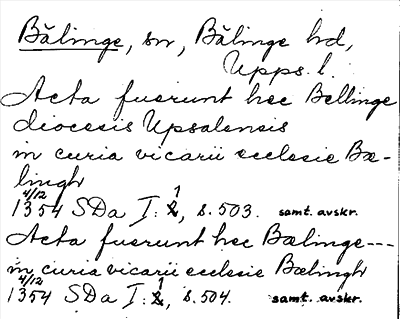 Bälinge, sn, Bälinge hd,
Upps. l.
Acta fuerunt hec Bellinge
diocesis Upsalensis
in curia vicarii ecclesie Bæ-
lingh
4/12
1354 SDa I: 1, s. 503. samt. avskr.
Acta fuerunt hec Bælinge---
in curia vicarii ecclesie Bælingh
4/12
1354 SDa I: 1, s. 504. samt. avskr.